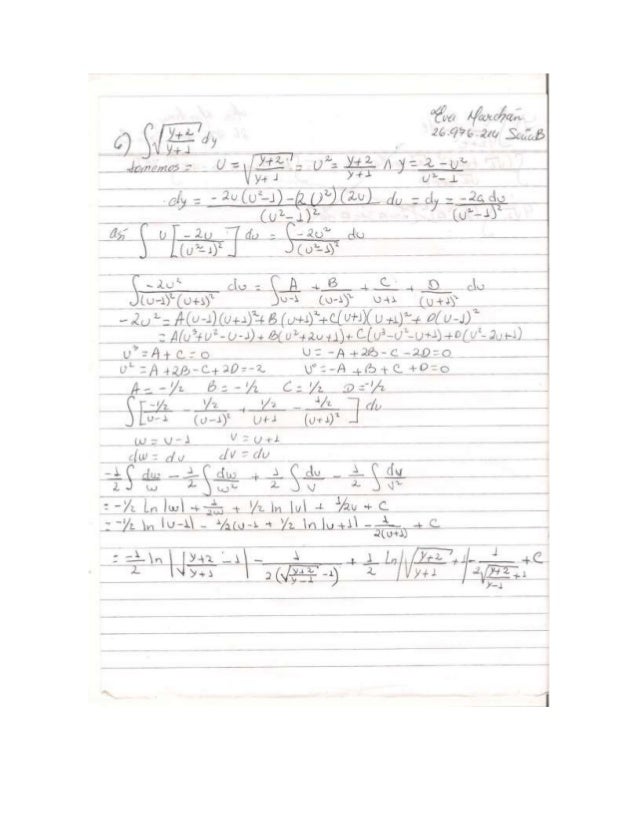 Eva Marchán
26.976.214 SaiaB
6) ∫√((y+2)/(y+1)) dy
tomemos = U = √((y+2)/(y+1)) = U² = (y+2)/(y+1) ∧ y = (2-U²)/(U²-1)
dy = (-2U(U²-1)-(2-U²)(2U))/(U²-1)² du = dy = -2u du/(U²-1)²
Así ∫ U [-2U/(U²-1)²] du = ∫ -2U²/(U²-1)² du
∫ -2U²/((U-1)²(U+1)²) du = ∫ A/(U-1) + B/(U-1)² + C/(U+1) + D/(U+1)² du
-2U² = A(U-1)(U+1)²+B(U+1)²+C(U+1)(U+1)²+D(U-1)²
= A(U³+U²-U-1)+B(U²+2U+1)+C(U³-U²-U+1)+D(U²-2U+1)
U³ = A+C = 0 U = -A+2B-C-2D = 0
U² = A+2B-C+2D = -2 U° = -A+B+C+D = 0
A = -1/2 B = -1/2 C = 1/2 D = -1/2
∫[(-1/2)/(U-1) - (1/2)/(U-1)² + (1/2)/(U+1) - (1/2)/(U+1)²] du
w = U-1 V = U+1
dw = du dv = du
-1/2 ∫ dw/w - 1/2 ∫ dw/w² + 1/2 ∫ dv/V - 1/2 ∫ dv/V²
= -1/2 Ln |w| + 1/2w + 1/2 ln |v| + 1/2v + C
= -1/2 ln |U-1| - 1/2(U-1 + 1/2 ln |U+1| - 1/2(U+1) + C
= -1/2 ln |√((y+2)/(y+1)) -1| - 1/(2(√((y+2)/(y-1)) -1)) + 1/2 Ln |√((y+2)/(y+1)) +1| - 1/(2√((y+2)/(y-1)) +1) + C